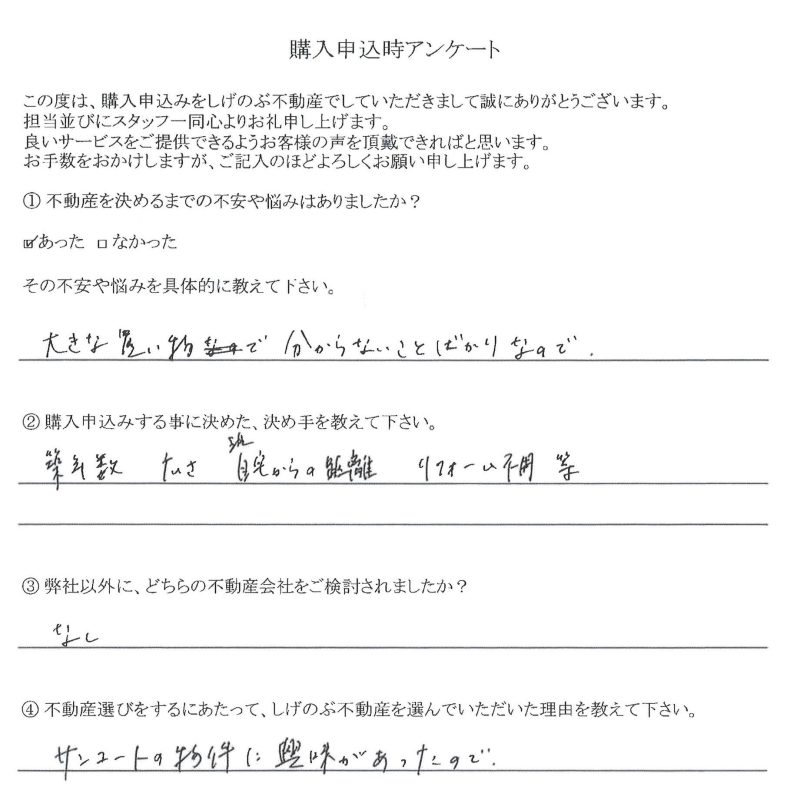 購入申込時アンケート
この度は、購入申込みをしげのぶ不動産でしていただきまして誠にありがとうございます。
担当並びにスタッフ一同心よりお礼申し上げます。
良いサービスをご提供できるようお客様の声を頂戴できればと思います。
お手数をおかけしますが、ご記入のほどよろしくお願い申し上げます。
① 不動産を決めるまでの不安や悩みはありましたか？
☑あった □なかった
その不安や悩みを具体的に教えて下さい。
大きな買い物で 分からないことばかりなので.
② 購入申込みする事に決めた、決め手を教えて下さい。
築年数 広さ 自宅からの距離 リフォーム不用 等
③ 弊社以外に、どちらの不動産会社をご検討されましたか？
なし
④ 不動産選びをするにあたって、しげのぶ不動産を選んでいただいた理由を教えて下さい。
サンコートの物件に興味があったので.